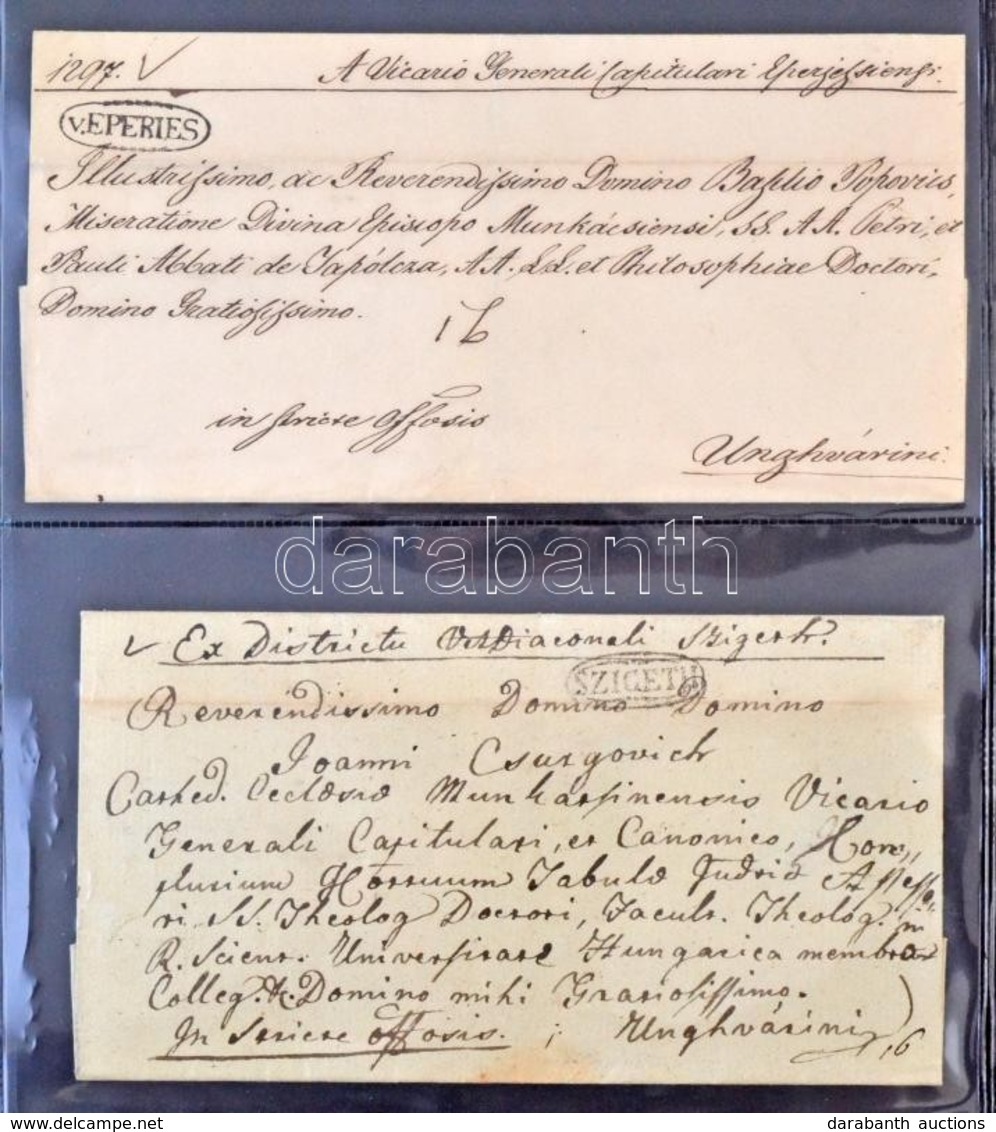 1297. A Vicario Generali Capitulari Eperjessiensi.
v. EPERIES
Illustrissimo, ac Reverendissimo Domino Basilio Popovics,
Miseratione Divina Episcopo Munkácsiensi, SS. AA. Petri, et
Pauli Abbati de Tapolcza, AA. LL. et Philosophiae Doctori,
Domino Gratiosissimo.
16
in stricte Offosis
Unghvárini.
darabanth
Ex Districtu Diaconali Szigeth.
SZIGETH
Reverendissimo Domino Domino
Joanni Csurgovich
Cathed. Ecclesiæ Munkatsinensis Vicario
Generali Capitulari, et Canonico, Com„
plurium Cottuum Tabulæ Judriæ Assesso„
ri, SS. Theolog Doctori, Facult. Theolog. in
R. Scient. Universitate Hungarica membro
Colleg. &. Domino mihi Gratiosissimo.
In Stricte offosis. ; Unghvárini
16
darabanth auctions